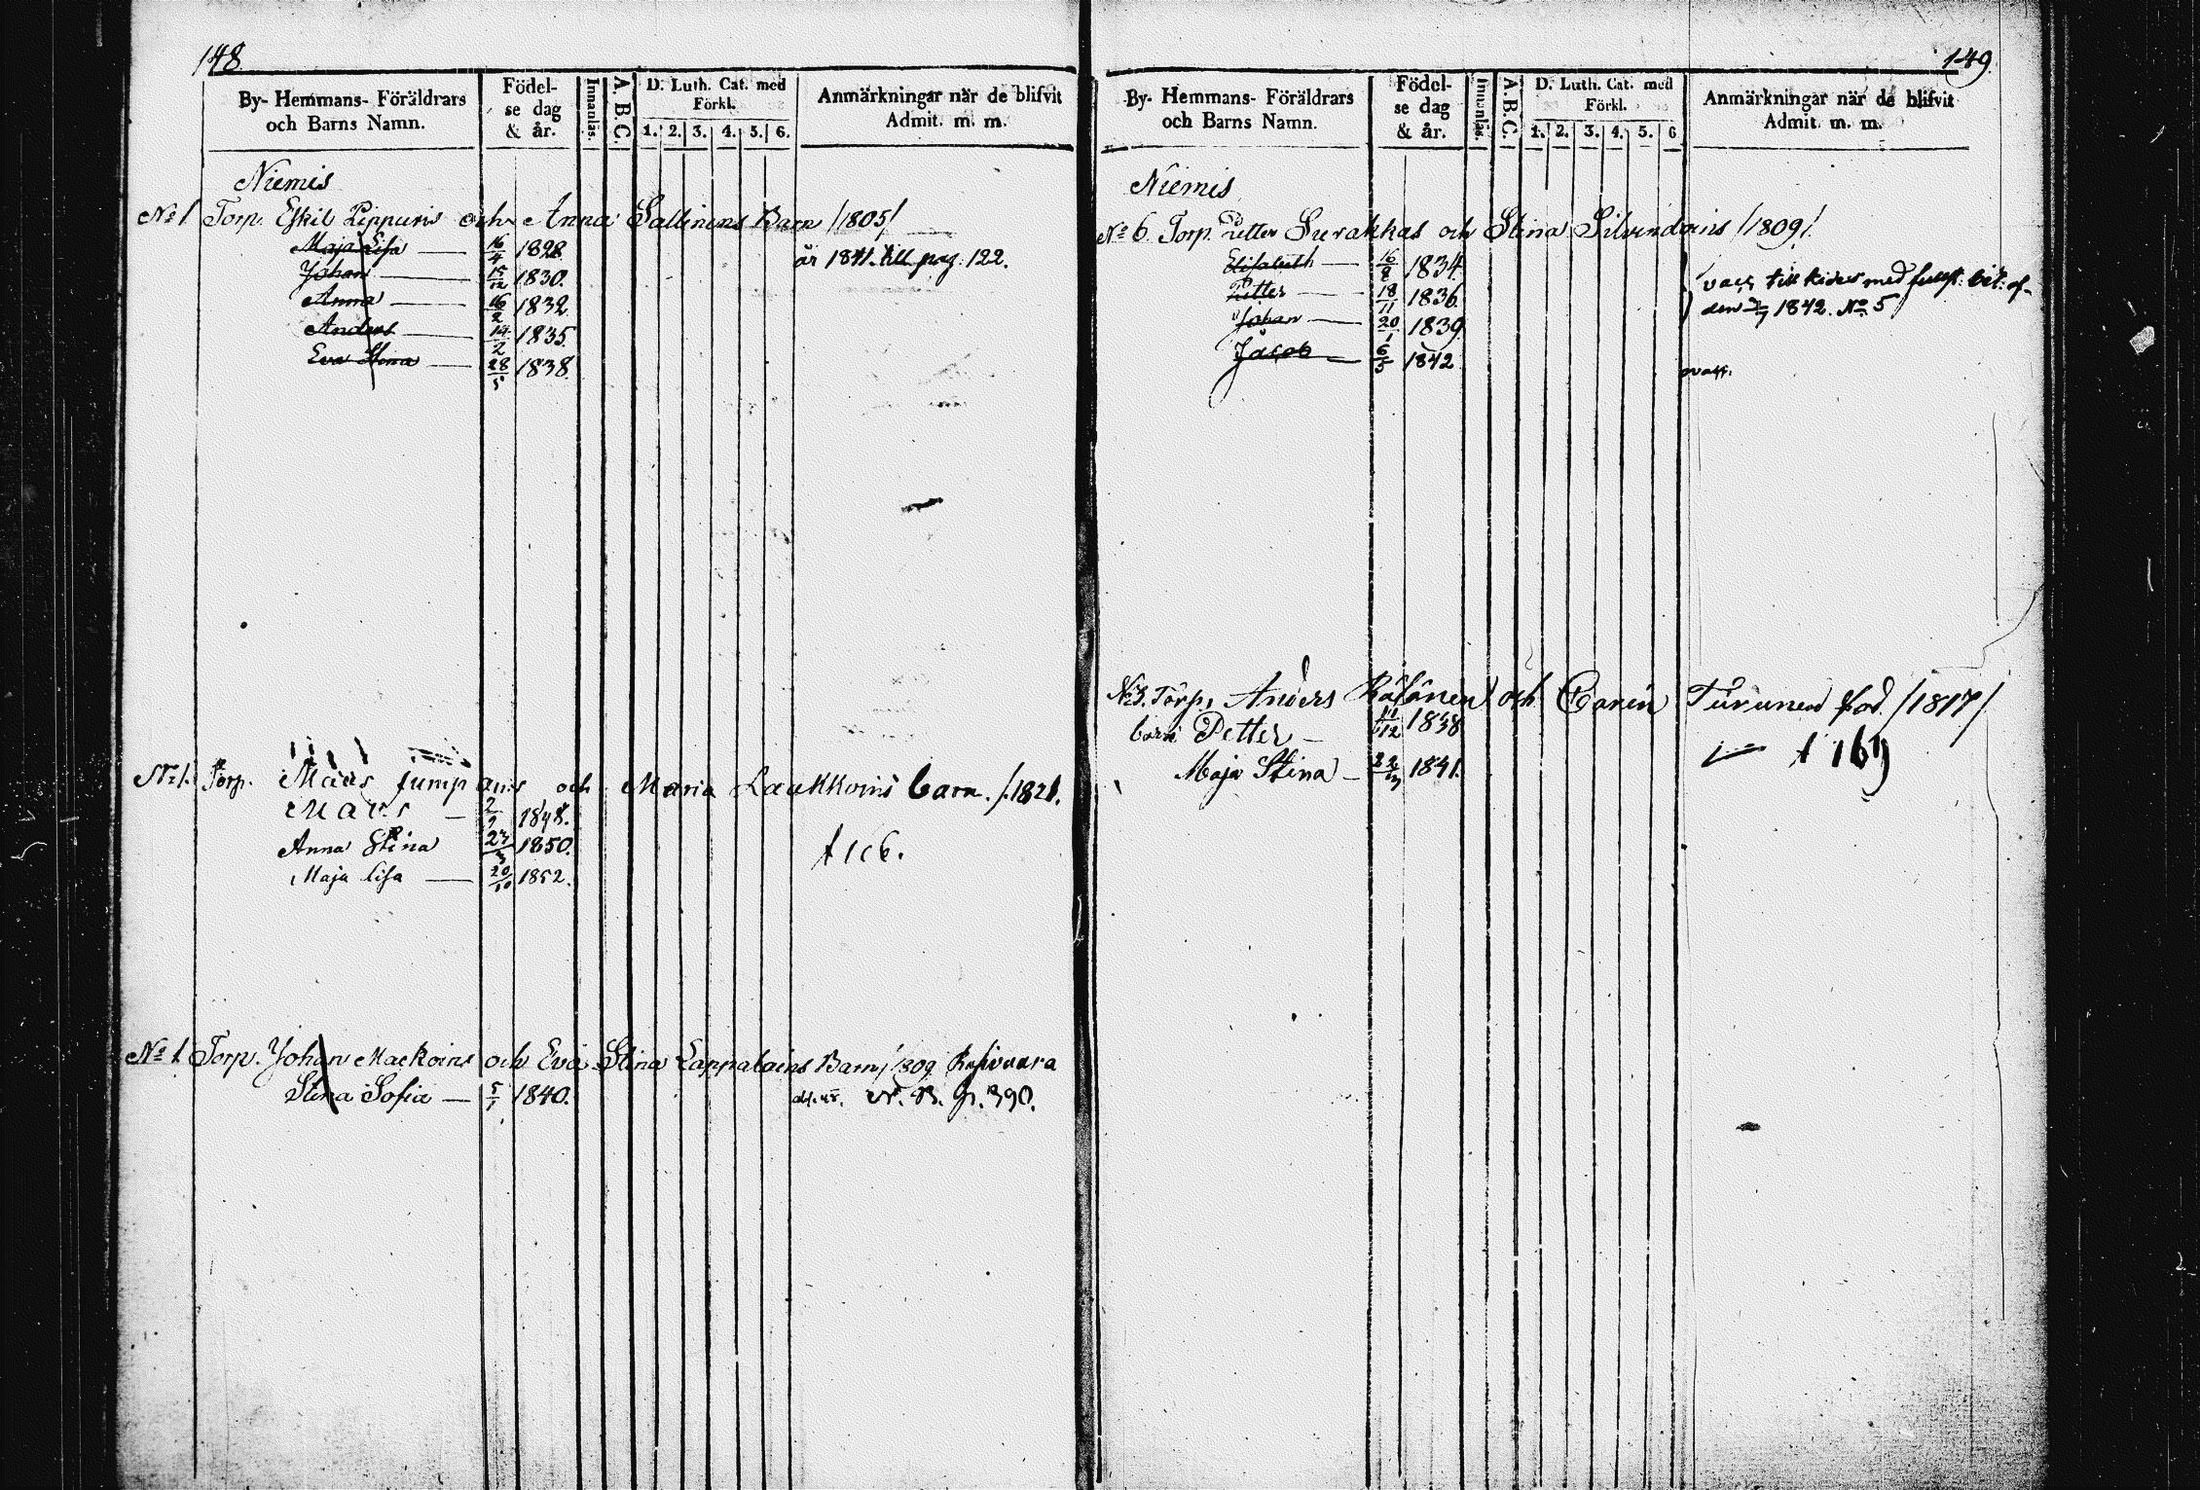 148.
By- Hemmans- Föräldrars och Barns Namn.
Födel-se dag & år.
Innanläs.
A. B. C.
D. Luth. Cat. med Förkl.
1. 2. 3. 4. 5. 6.
Anmärkningar når de blifvit Admit. m. m.
Niemis
No 1 Torp. Eskil Pippuris och Anna Sallinens Barn /1805/
Maja Lisa 16/4 1828
Johan 15/12 1830.
Anna 16/2 1832
Anders 14/2 1835
Eva Stina 28/5 1838.
är 1841 till pag. 122.
No 1. Torp. Mats Jumpains och Maria Laukkoins barn. /1821.
Mats 2/9 1848.
Anna Stina 23/3 1850.
Maja Lisa 20/10 1852.
No 1. Torp. Johan Mackoins och Eva Stina Lappalains Barn /809
Stina Sofia 5/1 1840.
N. B. p. 390.
149.
By- Hemmans- Föräldrars och Barns Namn.
Födel-se dag & år.
Innanläs.
A. B. C.
D. Luth. Cat. med Förkl.
1. 2. 3. 4. 5. 6
Anmärkningar når de blifvit Admit. m. m.
Niemis
No 6. Torp. Petter Surakkas och Stina Silvendoins /1809/.
Elisabeth 16/8 1834
Petter 18/11 1836
Johan 20/1 1839
Jacob 6/5 1842
till Kides med
den 1842. No 5
No 3. Torp. Anders och Carin Turunen föd. /1817/
barn Petter 1838
Maja Stina 1841.